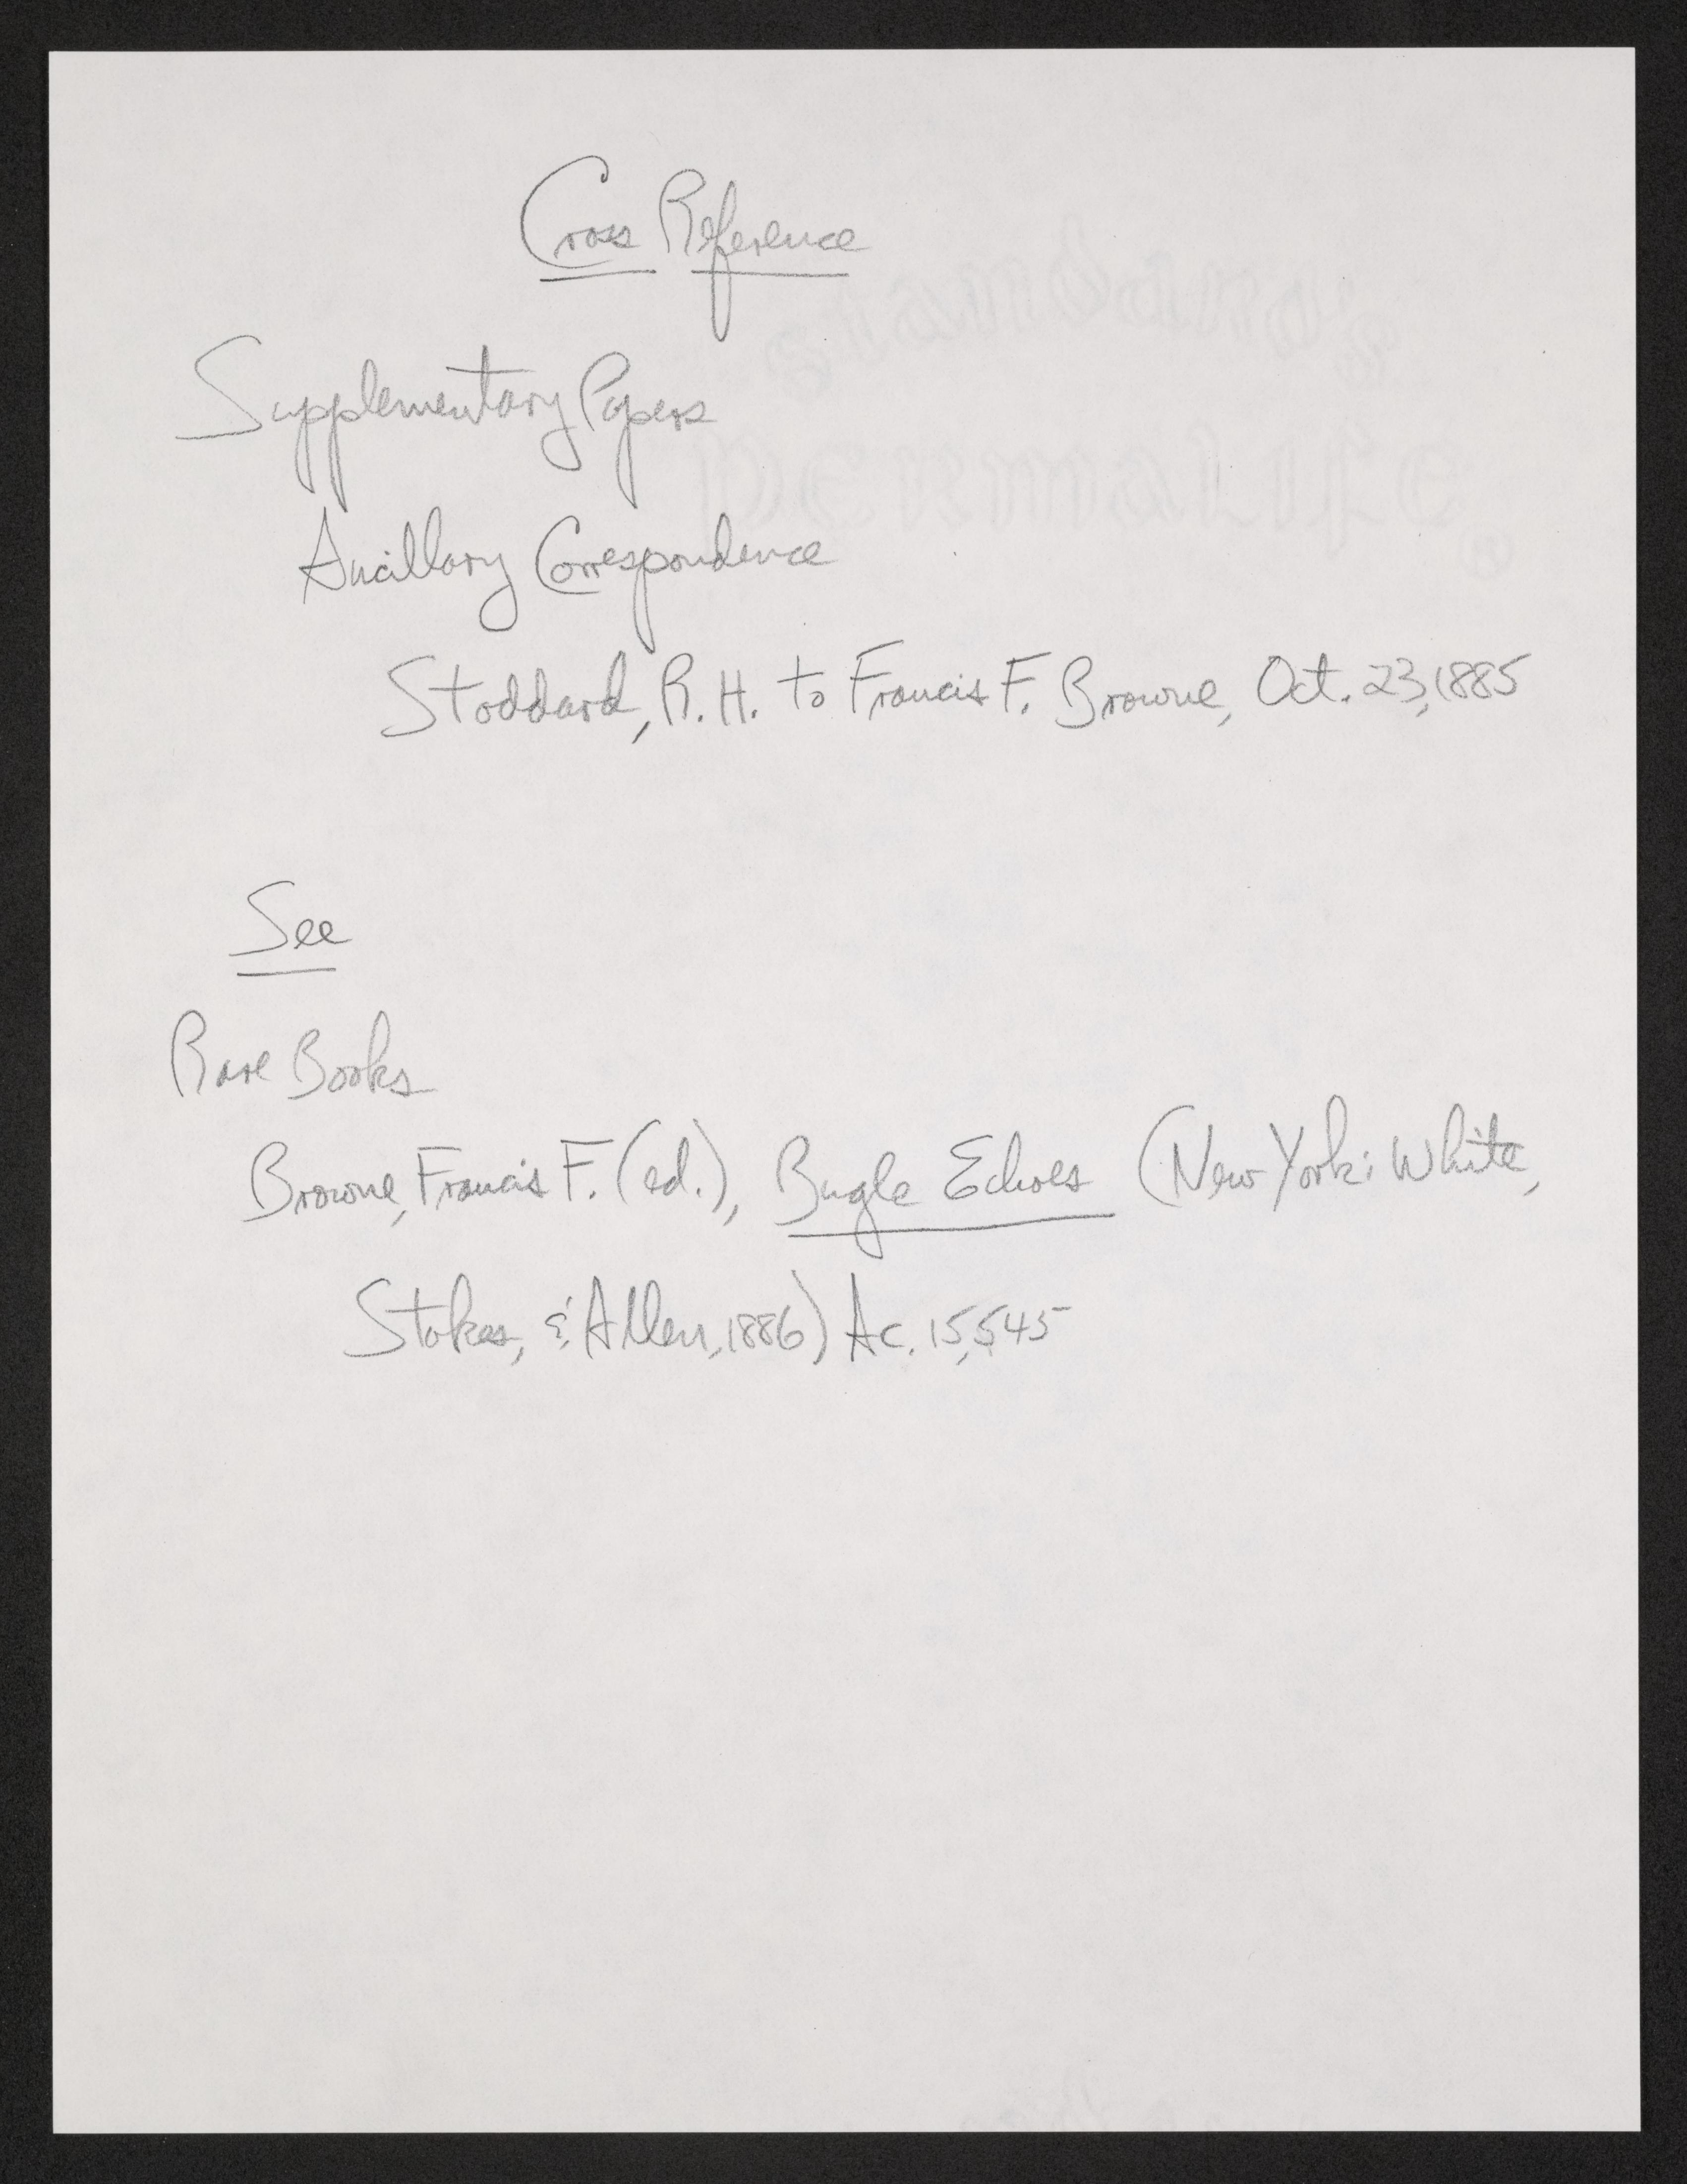 Cross Reference
Supplementary Papers
Ancillary Correspondence
Stoddard, R. H. to Francis F. Browne, Oct. 23, 1885
See
Rare Books
Browne, Francis F. (ed.), Bugle Echoes (New York: White,
Stokes, & Allen, 1886) Ac. 15,545